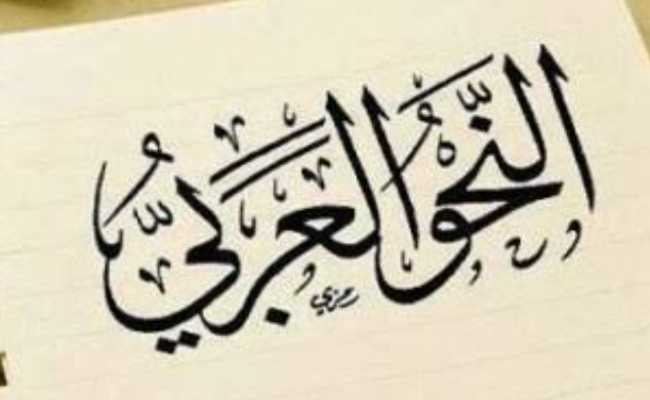 النَّحْوُ الْعَرَبِيُّ
رمزي